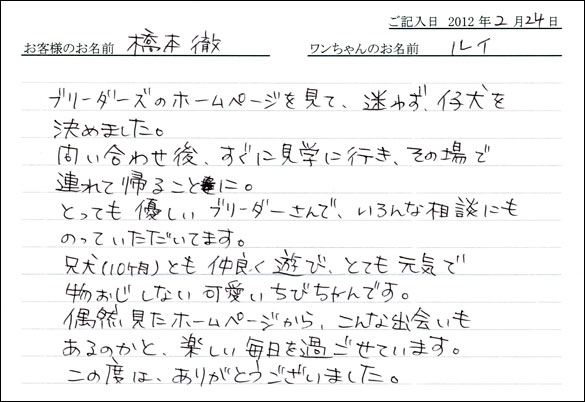 ご記入日 2012年2月24日
お客様のお名前 橋本徹 ワンちゃんのお名前 ルイ
ブリーダーズのホームページを見て、迷わず、仔犬を
決めました。
問い合わせ後、すぐに見学に行き、その場で
連れて帰ることに。
とっても優しいブリーダーさんで、いろんな相談にも
のっていただいてます。
兄犬(10ヶ月)とも仲良く遊び、とても元気で
物おじしない可愛いちびちゃんです。
偶然見たホームページから、こんな出会いも
あるのかと、楽しい毎日を過ごせています。
この度は、ありがとうございました。